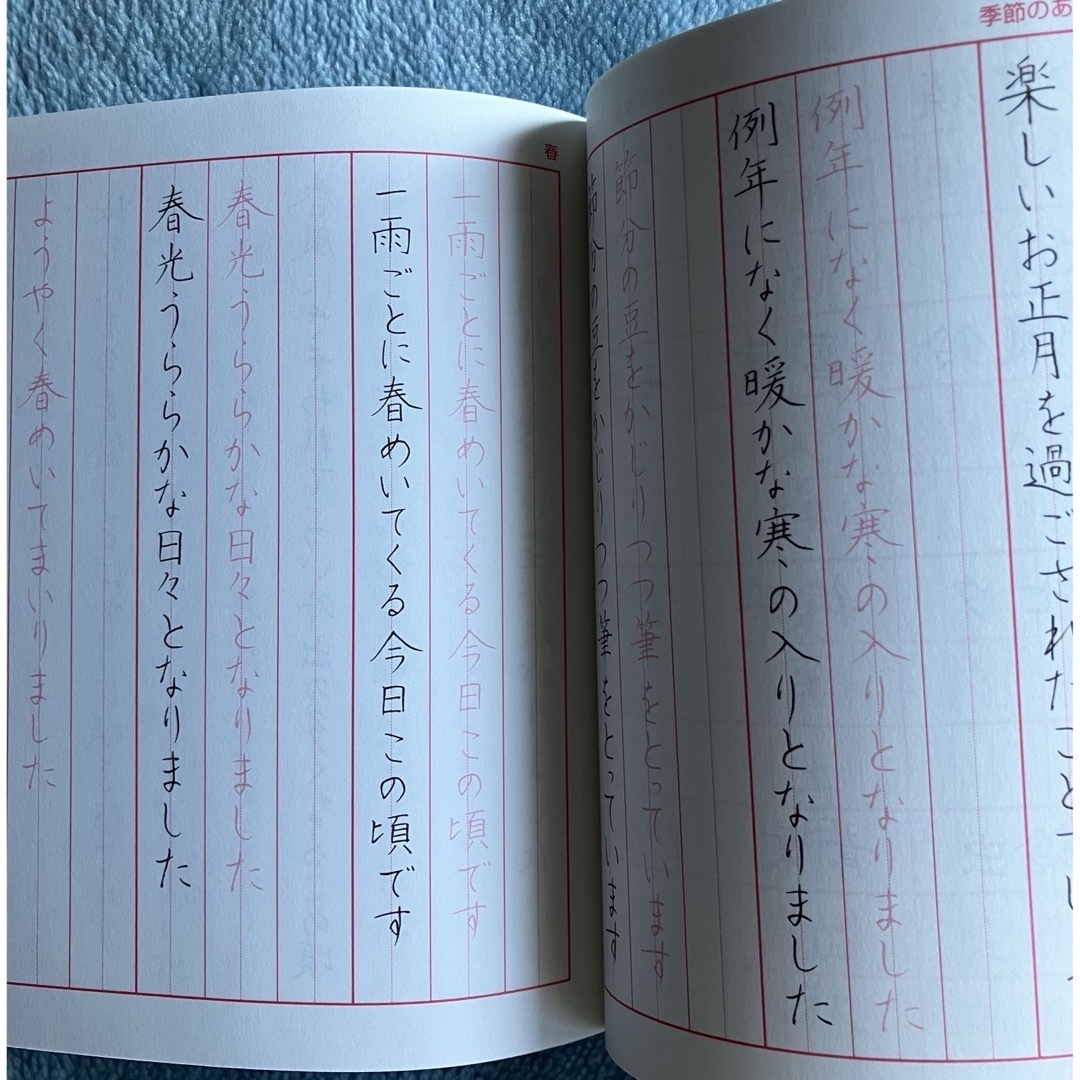 季節のあ
楽しいお正月を過ごされたことでし
例年になく暖かな寒の入りとなりました
例年になく暖かな寒の入りとなりました
節分の豆をかじりつつ筆をとっています
節分の豆をかじりつつ筆をとっています
春
一雨ごとに春めいてくる今日この頃です
一雨ごとに春めいてくる今日この頃です
春光うららかな日々となりました
春光うららかな日々となりました
ようやく春めいてまいりました